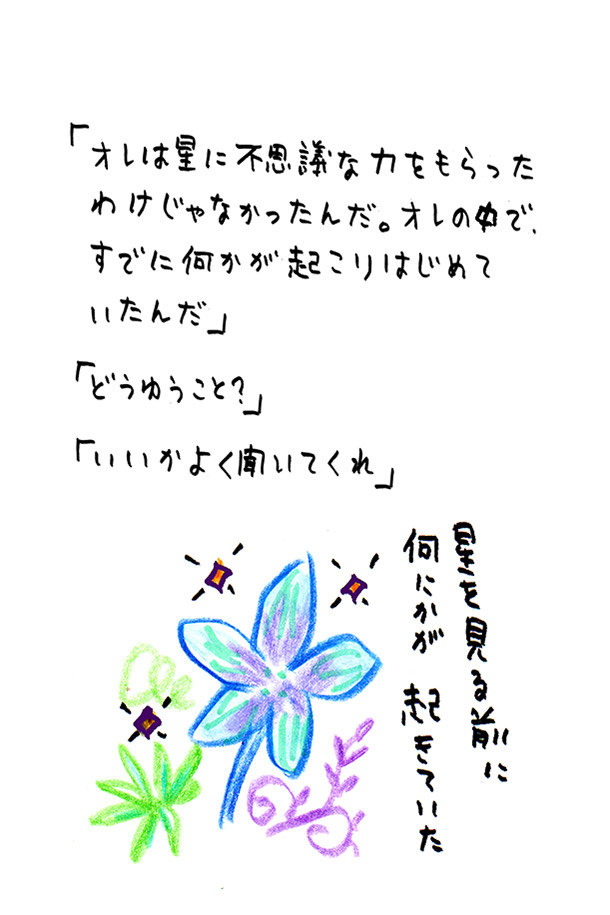 「オレは星に不思議な力をもらった
わけじゃなかったんだ。オレの中で、
すでに何かが起こりはじめて
いたんだ」
「どうゆうこと?」
「いいかよく聞いてくれ」
星を見る前に
何にかが 起きていた